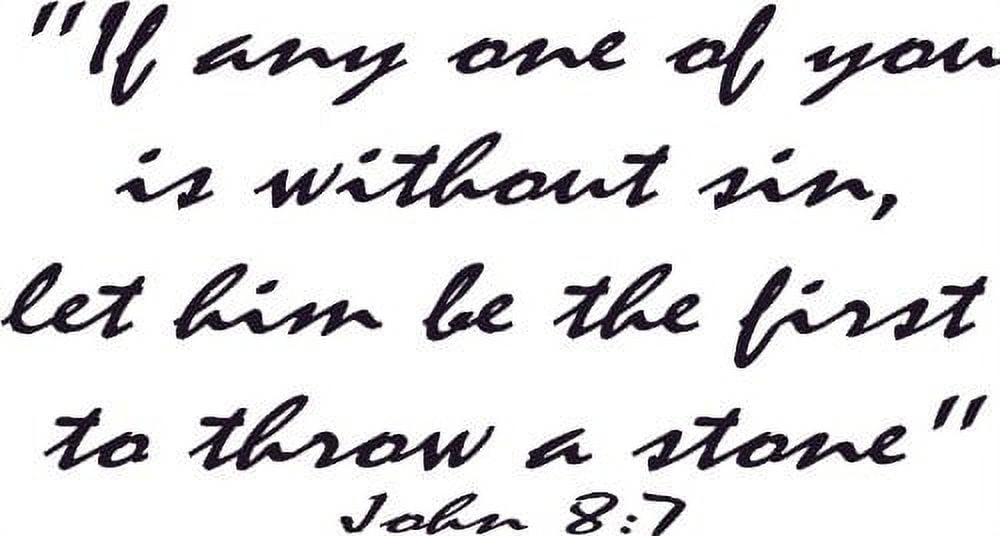 "If any one of you
is without sin,
let him be the first
to throw a stone"
John 8:7